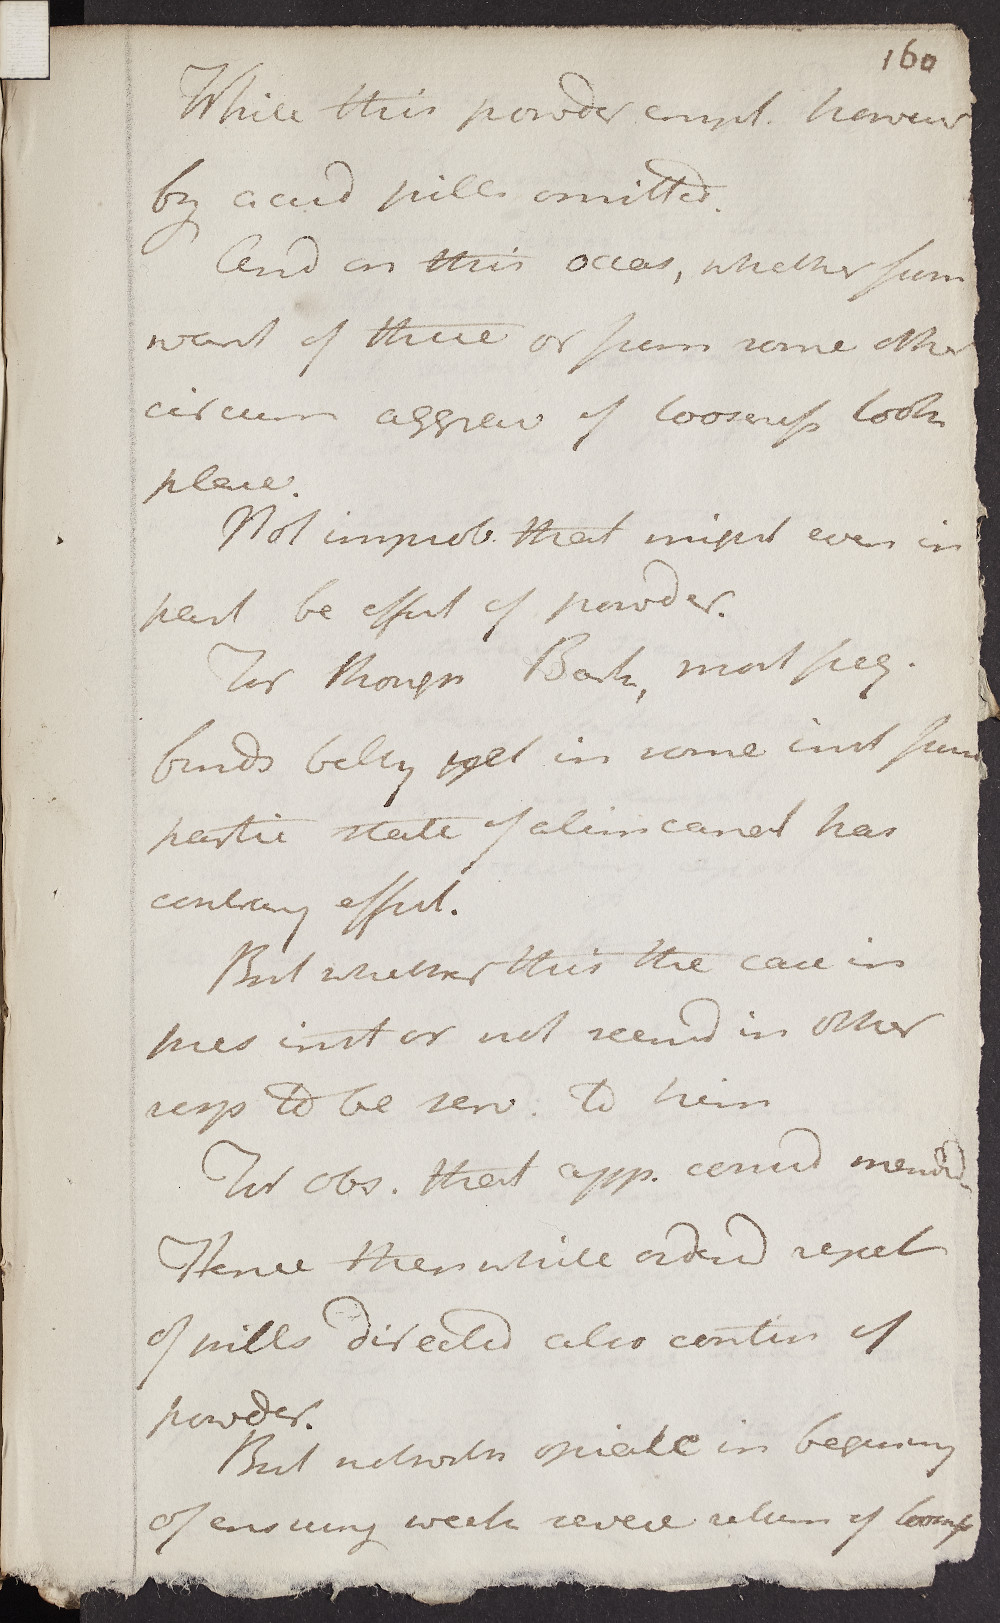 160
While this powder empl. however
by accid pills omitted.
And on this occas, whether from
want of these or from some other
circum aggrav of looseness took
place.
Not improb. that might even in
part be effect of powder.
For though Bark, most freq.
binds belly yet in some inst from
partic state of alim canal has
contrary effect.
But whether this the case in
pres inst or not seemd in other
resps to be serv. to him
For obs. that app. consid mended
Hence then while orderd repet
of pills directed also contin of
powder.
But notwth opiate in beginning
of ensuing week severe return of loosness